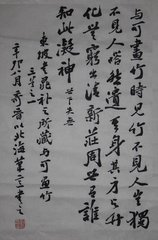 与可畫竹時見竹不見人豈獨
不見人嗒然遺其身其身与竹
化無窮出清新莊周世無誰
知此凝神
東坡晁補之所藏与可畫竹
三首之一
辛卯八月
北海